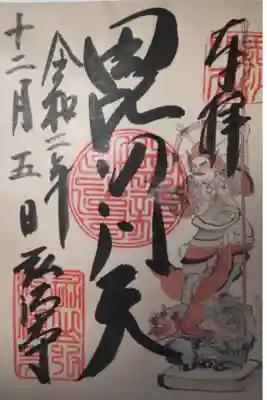 奉拝
毘沙門天
令和二年
十二月五日 弘法寺